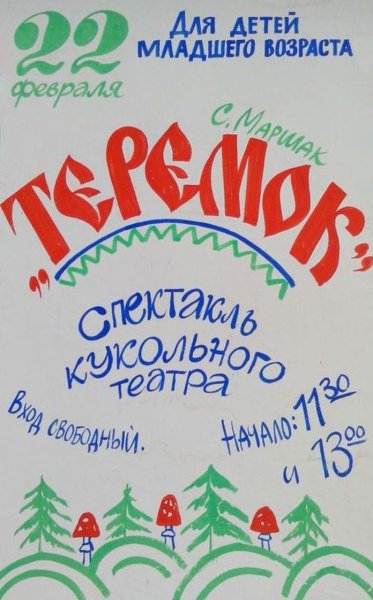 22
февраля
Для детей
младшего возраста
С. Маршак
"Теремок"
Спектакль
кукольного
театра
Вход свободный.
Начало: 11 30
и 13 00